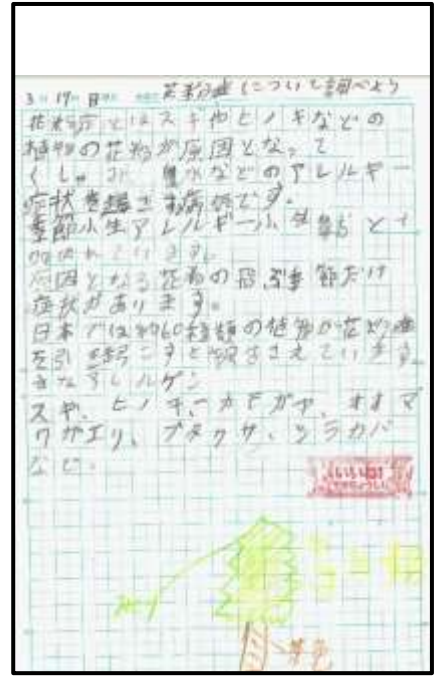 3月 17日 花粉症について調べよう
花粉症とはスギやヒノキなどの
植物の花粉が原因となって
くしゃみ 鼻水などのアレルギー
症状を起こす病気です。
季節性アレルギー性鼻炎とも
呼ばれています。
原因となる花粉の飛ぶ季節だけ
症状があります。
日本では約60種類の植物が花粉症
を引き起こすと報告されています。
主なアレルゲン
スギ、ヒノキ、カモガヤ、オオマ
ワサエリ、ブタクサ、シラカバ
など。
いいね!
茶色